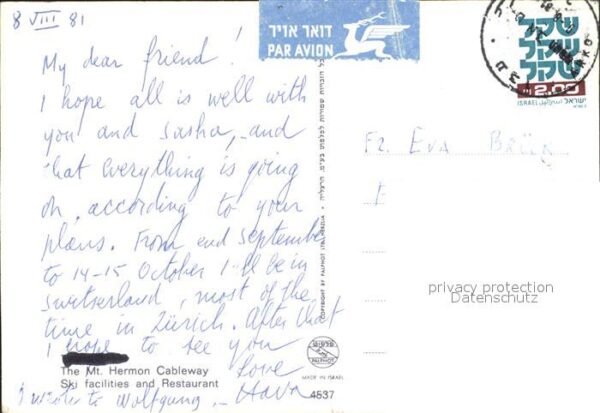 8 VIII 81
My dear friend!
I hope all is well with
you and Sasha, and
that everything is going
on, according to your
plans. From end September
to 14-15 October I'll be in
Switserland, most of the
time in Zürich. After that
I hope to see you
Love
Hava
I wrote to Wolfgang.
The Mt. Hermon Cableway
Ski facilities and Restaurant
דואר אויר
PAR AVION
שקל
שקל
שקל
2.00
ISRAEL ישראל
Fr. Eva Brück
privacy protection
Datenschutz
COPYRIGHT BY PALPHOT LTD. HERZLIA
פלפוט
PALPHOT
MADE IN ISRAEL
4537